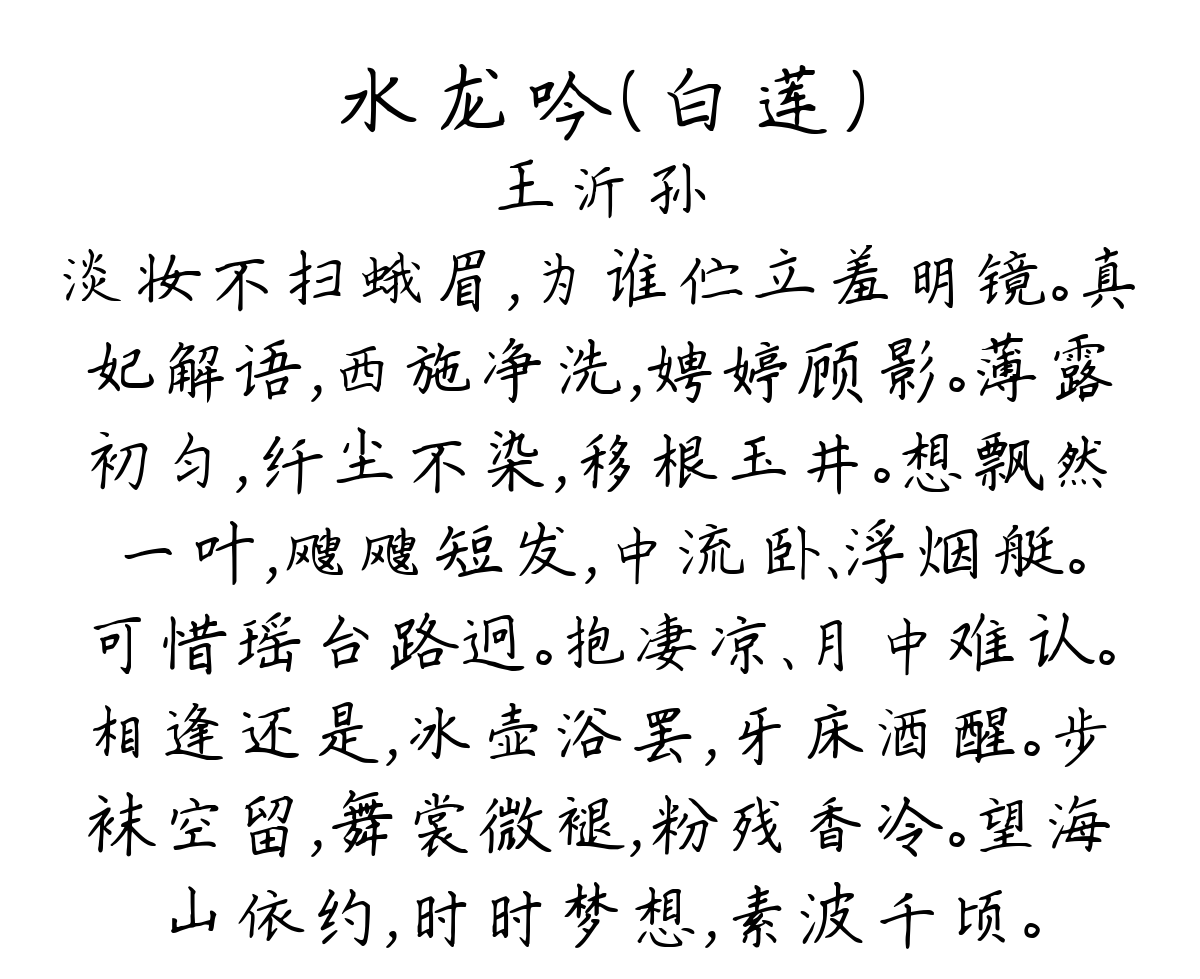 水龙吟(白莲)
王沂孙
淡妆不扫蛾眉,为谁伫立羞明镜。真
妃解语,西施净洗,娉婷顾影。薄露
初匀,纤尘不染,移根玉井。想飘然
一叶,飕飕短发,中流卧、浮烟艇。
可惜瑶台路迥。抱凄凉、月中难认。
相逢还是,冰壶浴罢,牙床酒醒。步
袜空留,舞裳微褪,粉残香冷。望海
山依约,时时梦想,素波千顷。